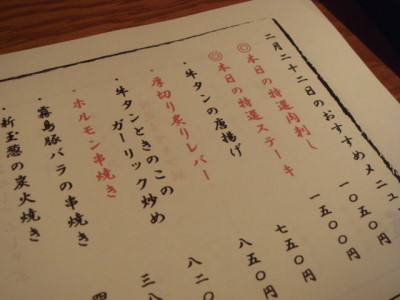 二月二十二日のおすすめメニュ
◎本日の特選肉刺し 一〇五〇円
◎本日の特選ステーキ 一五〇〇円
・牛タンの唐揚げ 七五〇円
・厚切り炙りレバー 八五〇円
・牛タンときのこの
ガーリック炒め 八二〇
・ホルモン串焼き 三八
・霧島豚バラの串焼き 四
・新玉葱の炭火焼き